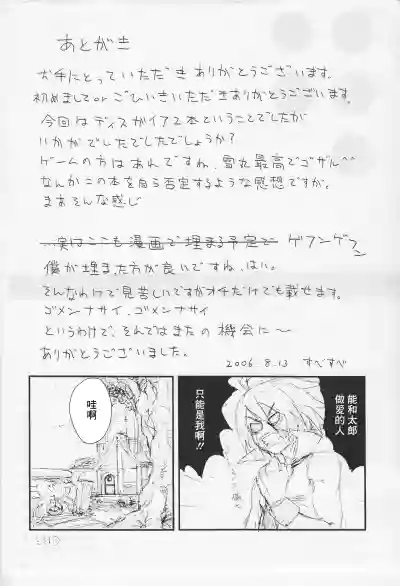 あとがき
お手にとっていただきありがとうございます。
初めましてorごひいきいただきありがとうございます。
今回はディスガイア2本ということでしたが
いかがでしたでしたでしょうか?
ゲームの方はあれですね、雪丸最高でゴザル^^
なんかこの本を自ら否定するような感想ですが。
まあそんな感じ
実はここも漫画で埋まる予定で ゲフンゲフン
僕が埋まった方が良いですね、はい。
そんなわけで見苦しいですがオチだけでも載せます。
ゴメンナサイ、ゴメンナサイ
というわけで、そんではまたの機会に〜
ありがとうございました。
2006.8.13 すべすべ
能和太郎
做爱的人
只能是我啊!!
哇啊